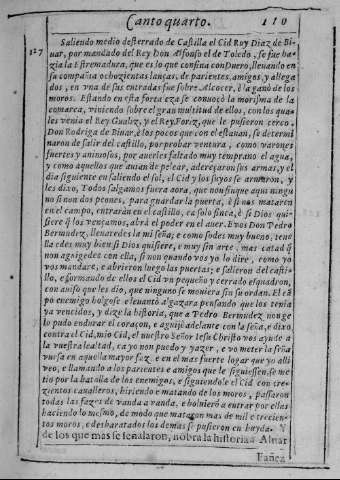 Canto quarto. 110
127 Saliendo medio desterrado de Castilla el Cid Ruy Diaz de Bi
uar, por mandado del Rey Don Alfonso el de Toledo, se fue ha
zia la Estremadura, que es lo que confina con Duero, lleuando en
su compañia ochozientas lanças, de parientes, amigos y allega
dos, en vna de sus entradas fue sobre Alcocer, è la ganò de los
moros. Estando en esta fortaleza se conuocò la morisma de la
comarca, viniendo sobre el gran multitud de ellos, con los qua
les venia el Rey Gualiz, y el Rey Foriz, que le pusieron cerco.
Don Rodrigo de Biuar, è los pocos que con el estauan, se determi
naron de salir del castillo, por probar ventura, como varones
fuertes y animosos, por auerles faltado muy temprano el agua,
y como aquellos que auian de pelear, adereçaron sus armas, y el
dia siguiente en saliendo el sol, el Cid y los suyos se armaron, y
les dixo, Todos salgamos fuera aora, que non finque aqui ningu
no si non dos peones, para guardar la puerta, è si nos mataren
en el campo, entraràn en el castillo, ca solo finca, è si Dios qui-
siere q̃ los vençamos, abrà el poder en al auer. E vos Don Pedro
Bermudez, lleuaredes la mi seña; e como sodes muy bueno, ten
lla edes muy bien si Dios quisiere, e muy sin arte, mas catad q̃
non aguigedes con ella, si non quando vos yo lo dire, como yo
vos mandare, e abrieron luego las puertas; e salieron del casti-
llo, e formando de ellos el Cid vn pequeño y cerrado esquadron,
con auiso que les dio, que ninguno se mouiera sin su ordan. El cã
po enemigo holgose e leuantò algazara pensando que los tenia
ya vencidos, y dize la historia, que a Pedro Bermudez non ge
lo pudo endurar el coraçon, e aguijò adelante con la seña, e dixo,
contra el Cid, mio Cid, el nuestro Señor Iesu Christo vos ayude a
la vuestra lealtad, ca yo non puedo y yazer, e vo meter la seña
vuessa en aquella mayor faz, e en el mas fuerte logar que yo alli
veo, e llamando a los parientes e amigos que le siguiessen, se me
tio por la batalla de los enemigos, e siguiendole el Cid con trez-
zientos caualleros, hiriendo e matando de los moros, passaron
todas las fazes de vanda a vanda, e boluierõ a entrar por ellas
haziendo lo mesmo, de modo que mataron mas de mil e trecien-
tos moros, e desbaratados los demas se pusieron en huyda. Y
de los que mas se señalaron, nõbra la historia a Aluar
Fañez